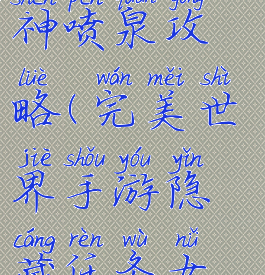 shén pēn quán gōng
神喷泉攻
lüè wán měi shì
略(完美世
jiè shǒu yóu yǐn
界手游隐
cáng rèn wù nǚ
藏任务女